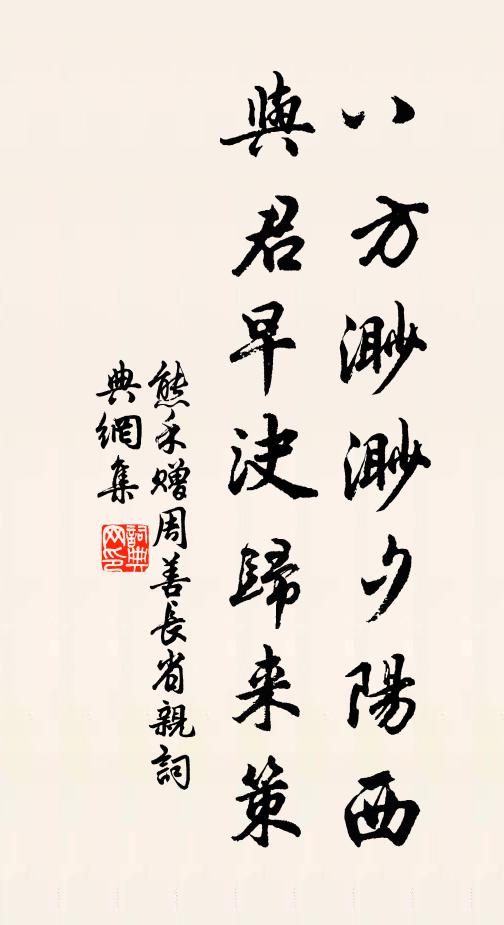 八方渺渺夕陽西
與君早決歸来策
熊禾贈周善長省親詞
典網集
詞典網印